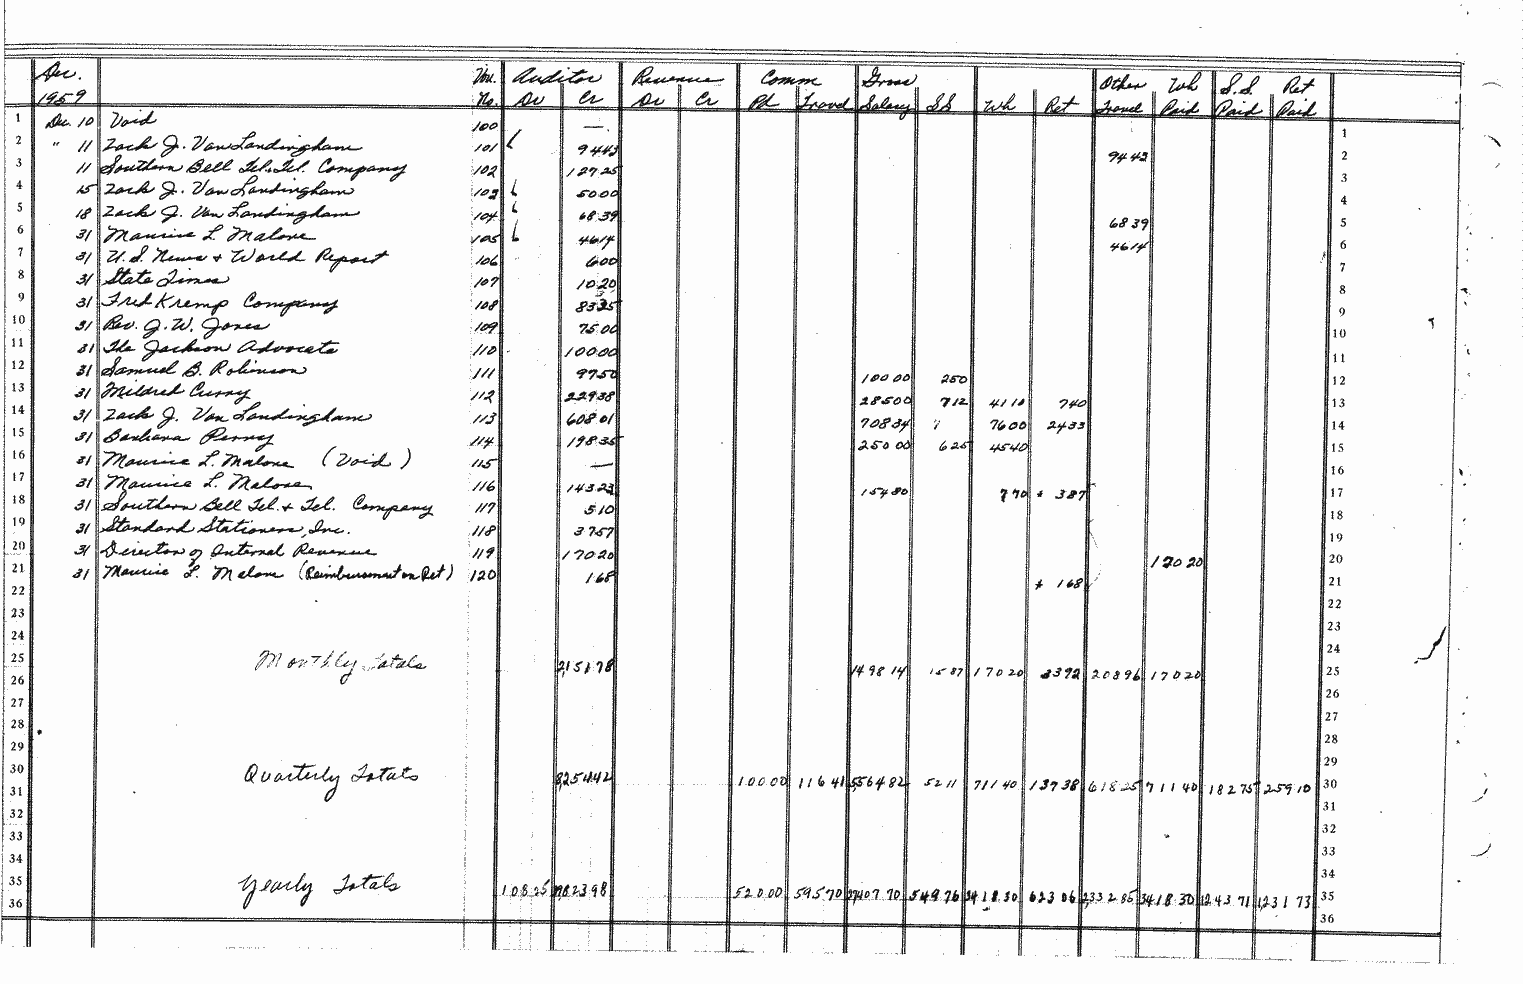 Dec. Vou. Auditor Revenue Comm Gross Other Wh S.S. Ret
1959 No. Dr Cr Dr Cr Pd Travel Salary SS Wh Ret Travel Paid Paid Paid
1 Dec. 10 Void 100 — 1
2 " 11 Zack J. Van Landingham 101 94 43 94 43 2
3 11 Southern Bell Tel. & Tel. Company 102 127 25 3
4 15 Zack J. Van Landingham 103 50 00 4
5 18 Zack J. Van Landingham 104 68 39 68 39 5
6 31 Maurice L. Malone 105 46 14 46 14 6
7 31 U.S. News & World Report 106 6 00 7
8 31 State Times 107 10 20 8
9 31 Fred Kremp Company 108 83 35 9
10 31 Rev. J. W. Jones 109 75 00 10
11 31 The Jackson Advocate 110 100 00 11
12 31 Samuel B. Robinson 111 97 50 100 00 2 50 12
13 31 Mildred Curry 112 229 38 285 00 7 12 41 10 7 40 13
14 31 Zack J. Van Landingham 113 608 01 708 34 76 00 24 33 14
15 31 Barbara Perry 114 198 35 250 00 6 25 45 40 15
16 31 Maurice L. Malone (Void) 115 — 16
17 31 Maurice L. Malone 116 143 23 154 80 7 70 * 3 87 17
18 31 Southern Bell Tel. & Tel. Company 117 5 10 18
19 31 Standard Stationers, Inc. 118 37 57 19
20 31 Director of Internal Revenue 119 170 20 170 20 20
21 31 Maurice L. Malone (Reimbursement on Ret) 120 1 68 * 1 68 21
22 22
23 23
24 24
25 Monthly Totals 2,151 78 1498 14 15 87 170 20 33 92 208 96 170 20 25
26 26
27 27
28 28
29 29
30 Quarterly Totals 8,254 42 100 00 116 41 5,564 82 52 11 711 40 137 38 618 25 711 40 182 75 259 10 30
31 31
32 32
33 33
34 34
35 Yearly Totals 108 25 823 98 520 00 595 70 407 70 549 76 3418 30 623 06 2,332 85 3418 30 1243 71 1,231 73 35
36 36